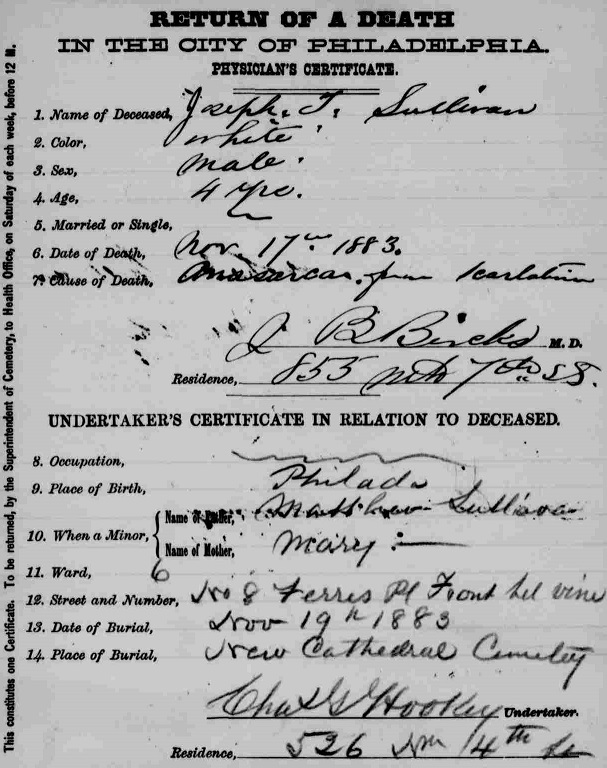 RETURN OF A DEATH
IN THE CITY OF PHILADELPHIA.
PHYSICIAN'S CERTIFICATE.
1. Name of Deceased, Joseph. T. Sullivan
2. Color, white
3. Sex, Male.
4. Age, 4 yrs.
5. Married or Single,
6. Date of Death, Nov. 17th 1883.
7. Cause of Death, Anasarca. from Scarlatina
J B Bircks M. D.
Residence, 855 nth 7th St.
UNDERTAKER'S CERTIFICATE IN RELATION TO DECEASED.
8. Occupation,
9. Place of Birth, Philada
10. When a Minor,
Name of Father, Matthew Sullivan
Name of Mother, Mary
11. Ward, 6
12. Street and Number, No 8 Ferres Pl Front bel vine
13. Date of Burial, Nov 19th 1883
14. Place of Burial, New Cathedral Cemetery
Chas Hookey Undertaker.
Residence, 526 14th
This constitutes one Certificate. To be returned, by the Superintendent of Cemetery, to Health Office, on Saturday of each week, before 12 M.